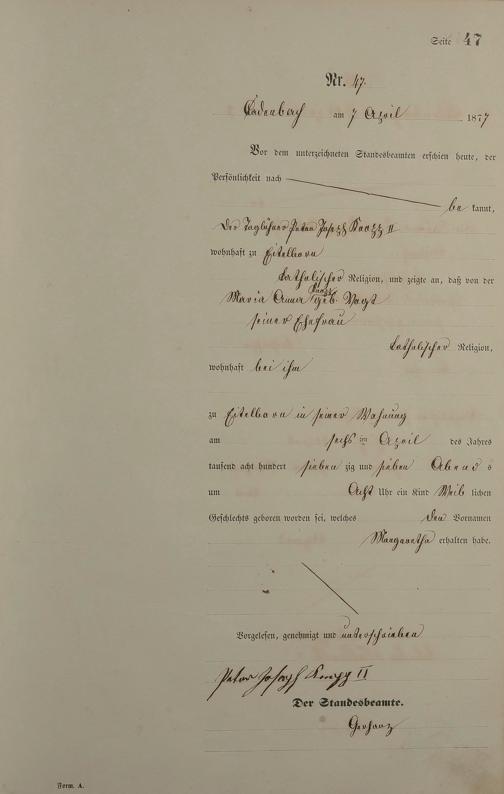 Seite 47
Nr. 47.
Cadenbach am 7 April 1877
Vor dem unterzeichneten Standesbeamten erschien heute, der
Persönlichkeit nach
be kannt,
der Taglöhner Peter Joseph Knopp II
wohnhaft zu Eitelborn
katholischer Religion, und zeigte an, daß von der
Knopp
Maria Anna geb. Vogt
seiner Ehefrau
katholischer Religion,
wohnhaft bei ihm
zu Eitelborn in seiner Wohnung
am sechs ten April des Jahres
tausend acht hundert sieben zig und sieben Abend s
um Acht Uhr ein Kind Weib lichen
Geschlechts geboren worden sei, welches den Vornamen
Margaretha erhalten habe.
Vorgelesen, genehmigt und unterschrieben
Peter Joseph Knopp II
Der Standesbeamte.
Form. A.